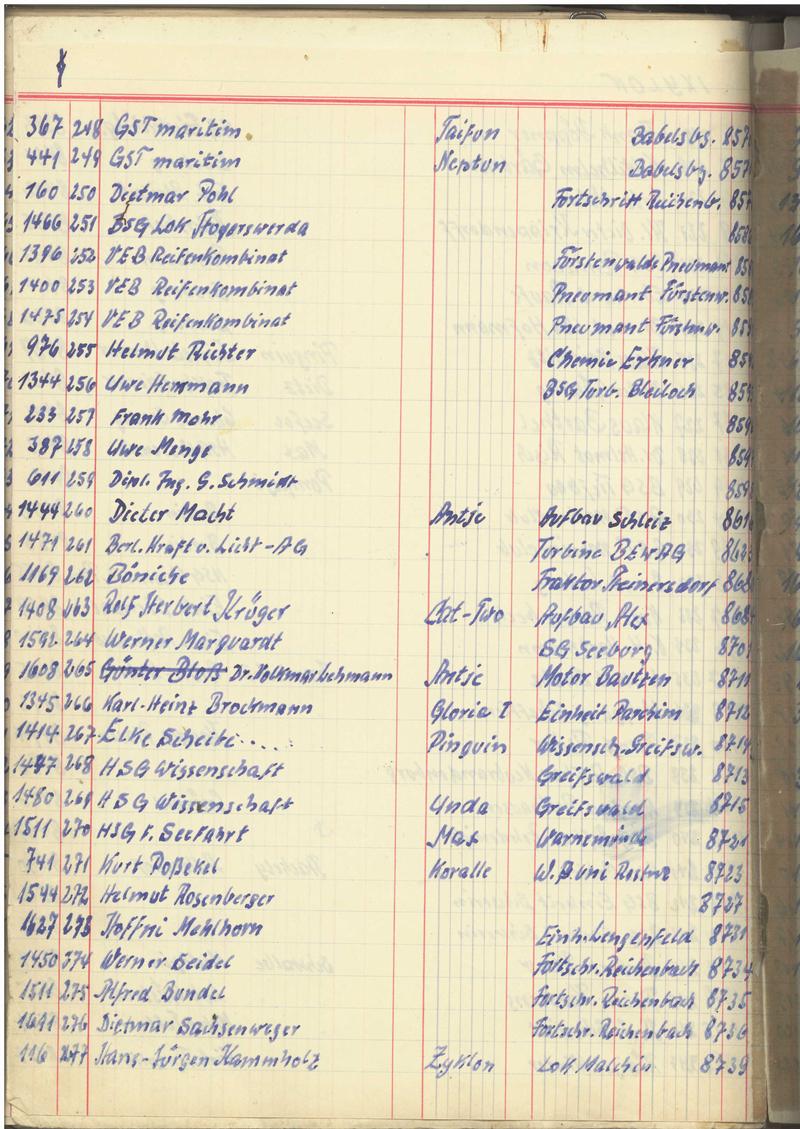 367 248 GST maritim Taifun Babelsbg. 857
441 249 GST maritim Neptun Babelsbg. 857
160 250 Dietmar Pohl Fortschritt Reichenb. 857
1466 251 BSG Lok Hoyerswerda 858
1396 252 VEB Reifenkombinat Fürstenwalde Pneumant 85
1400 253 VEB Reifenkombinat Pneumant Fürstenw. 85
1475 254 VEB Reifenkombinat Pneumant Fürstenw. 85
976 255 Helmut Richter Chemie Erkner 859
1344 256 Uwe Hemmann BSG Turb. Bleiloch 859
233 257 Frank Mohr 859
387 258 Uwe Menge 859
611 259 Dipl. Ing. G. Schmidt 859
1444 260 Dieter Macht Antje Aufbau Schleiz 861
1471 261 Berl. Kraft u. Licht-AG Turbine BEWAG 862
1169 262 Böniche Traktor Heinersdorf 868
1408 263 Rolf Herbert Krüger Cat-Two Aufbau Alex 868
1592 264 Werner Marquardt SG Seeburg 870
1608 265 Günter Bloß Dr. Volkmar Lehmann Antje Motor Bautzen 8711
1345 266 Karl-Heinz Brockmann Gloria I Einheit Parchim 8712
1414 267 Elke Scheibe.... Pinguin Wissensch. Greifsw. 8714
1477 268 HSG Wissenschaft Greifswald 8713
1480 269 HSG Wissenschaft Unda Greifswald 8715
1511 270 HSG f. Seefahrt Warnemünde 8721
741 271 Kurt Poßekel Koralle W.P. uni 8723
1544 272 Helmut Rosenberger 8727
1627 273 Mehlhorn Einh. Lengenfeld 8731
1450 374 Werner Seidel Fortschr. Reichenbach 8734
1511 275 Alfred Bundel Fortschr. Reichenbach 8735
1691 276 Dietmar Sachsenweger Fortschr. Reichenbach 8736
116 277 Hans-Jürgen Kammholz Zyklon Lok Malchin 8739